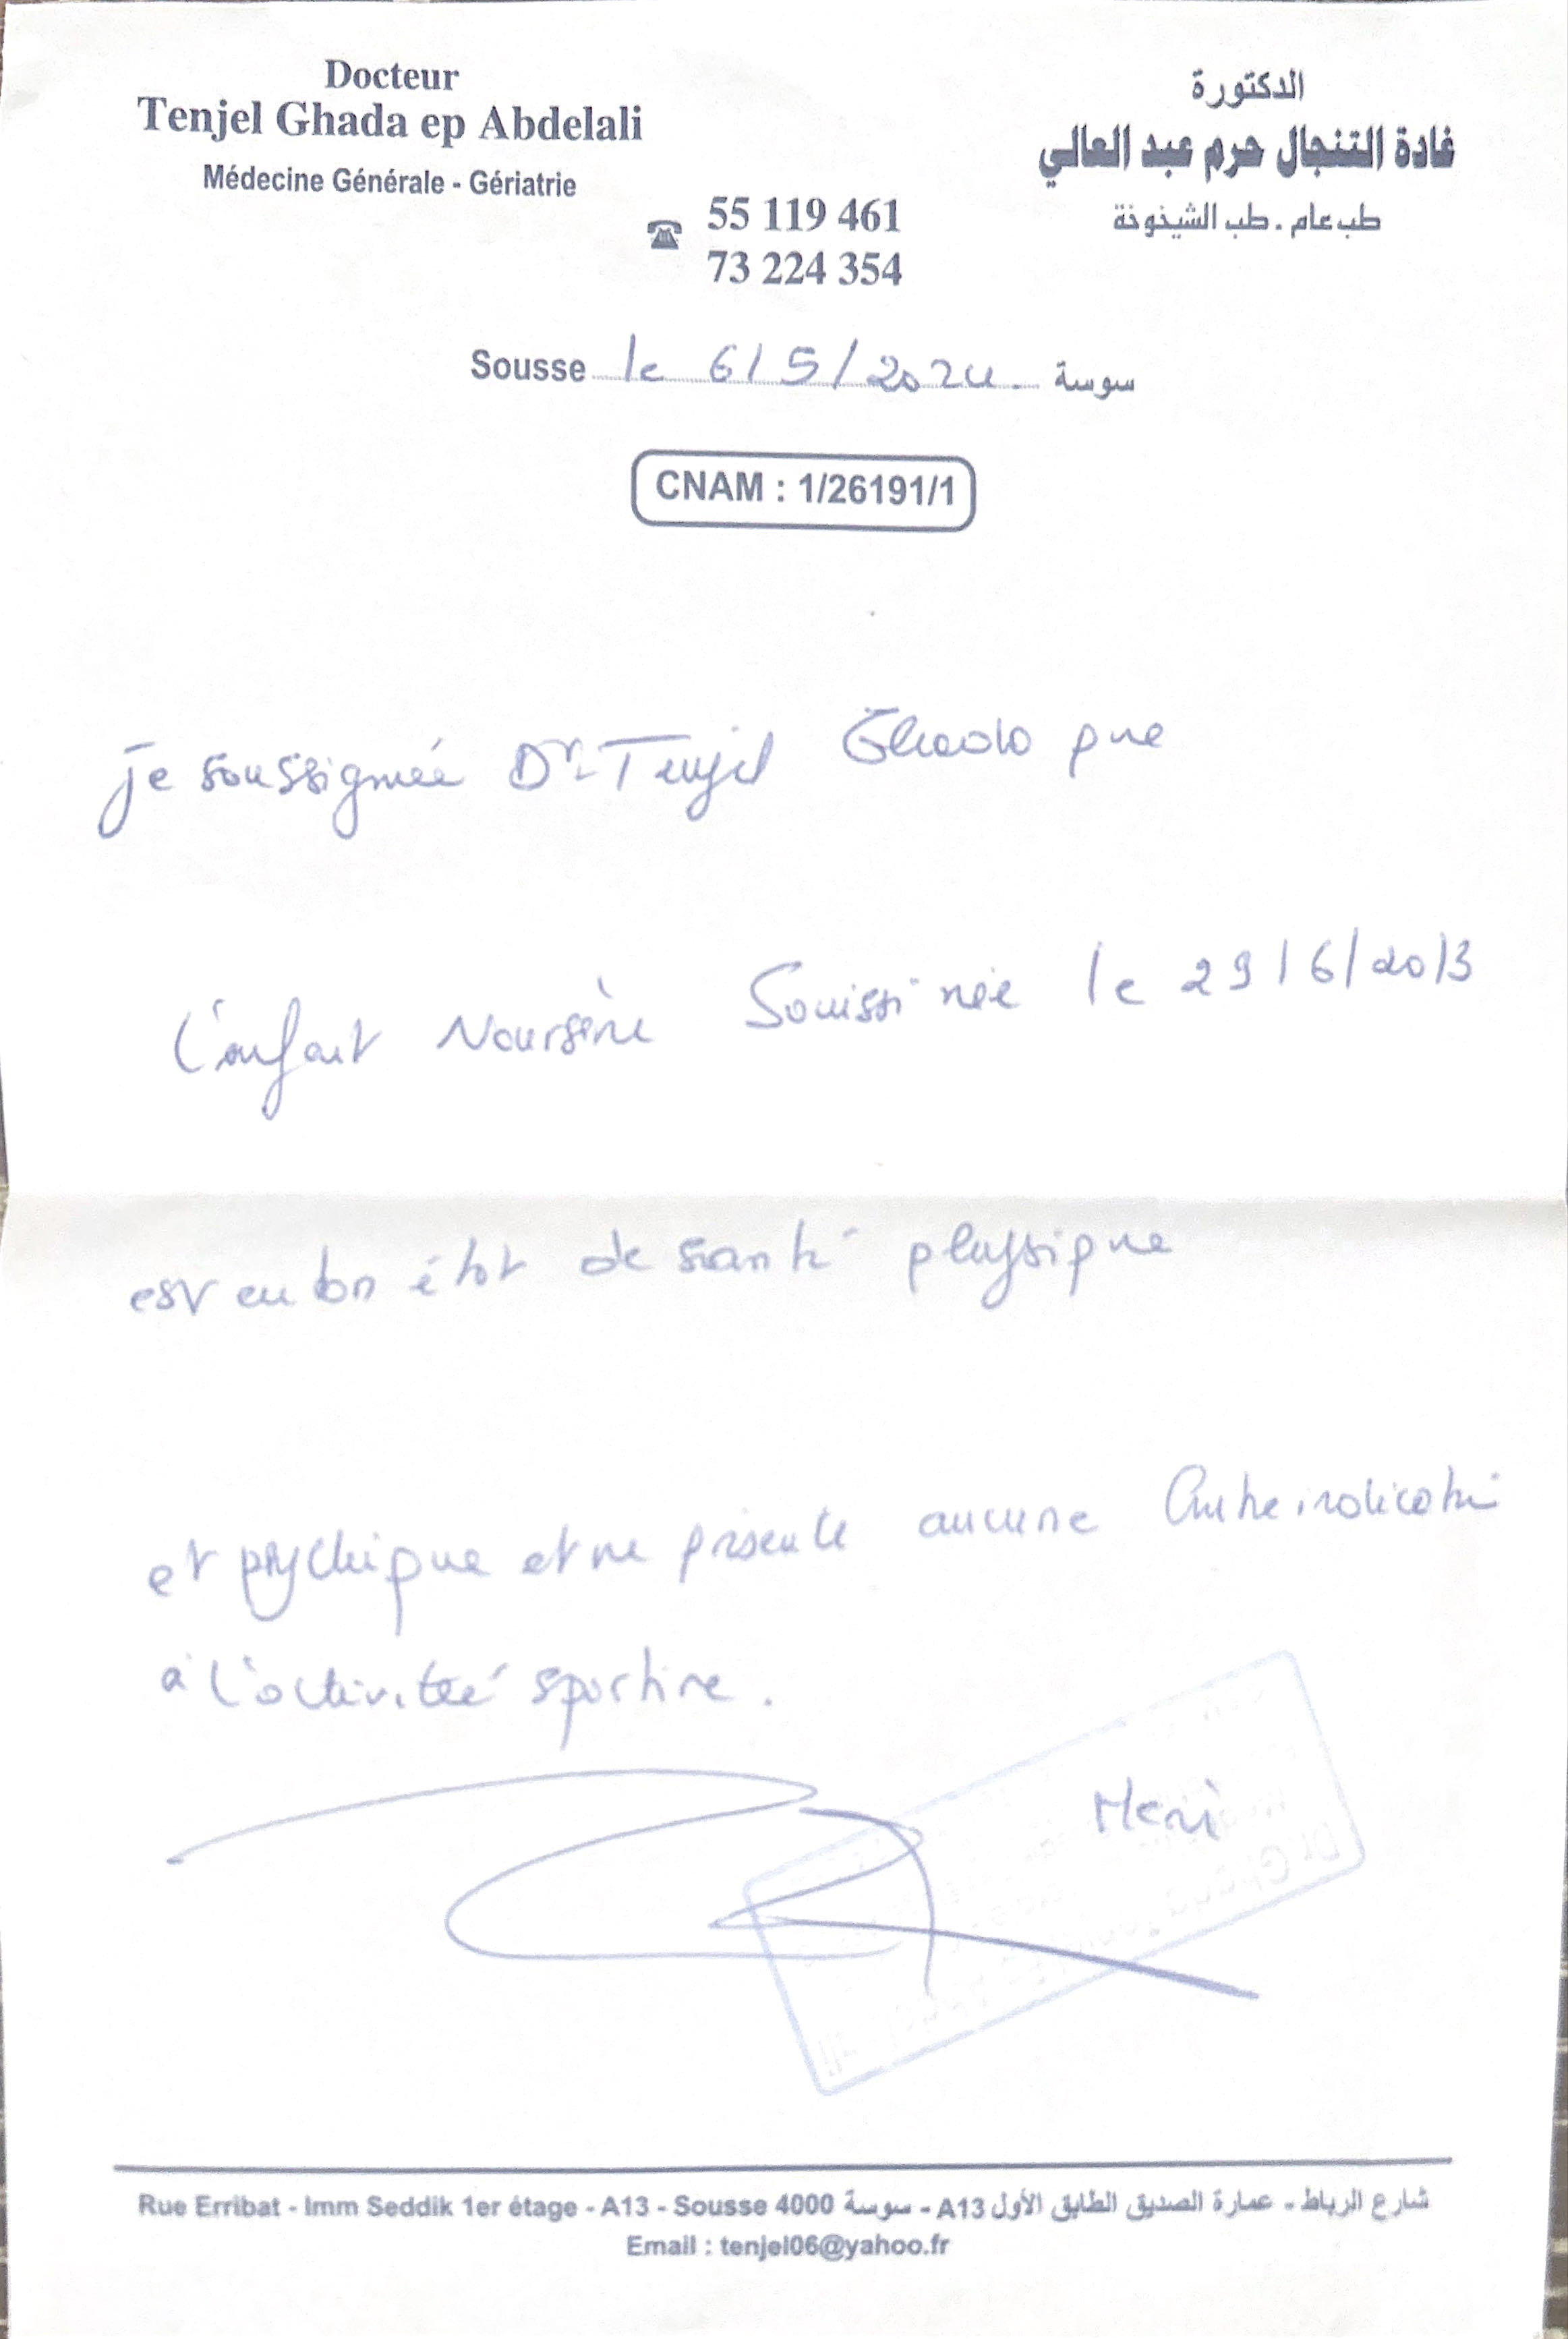 Docteur
Tenjel Ghada ep Abdelali
Médecine Générale - Gériatrie
الدكتورة
غادة التنجال حرم عبد العالي
طب عام . طب الشيخوخة
55 119 461
73 224 354
Sousse le 6/5/2024. سوسة
CNAM : 1/26191/1
je soussignée Dr Tenjel Ghada que
l'enfant Noursène Souissi née le 29/6/2013
est en bon état de santé physique
et psychique et ne présente aucune Contreindication
à l'activiteé sportive.
Merci
Rue Erribat - Imm Seddik 1er étage - A13 - Sousse 4000 شارع الرباط - عمارة الصديق الطابق الأول A13 - سوسة
Email : tenjel06@yahoo.fr